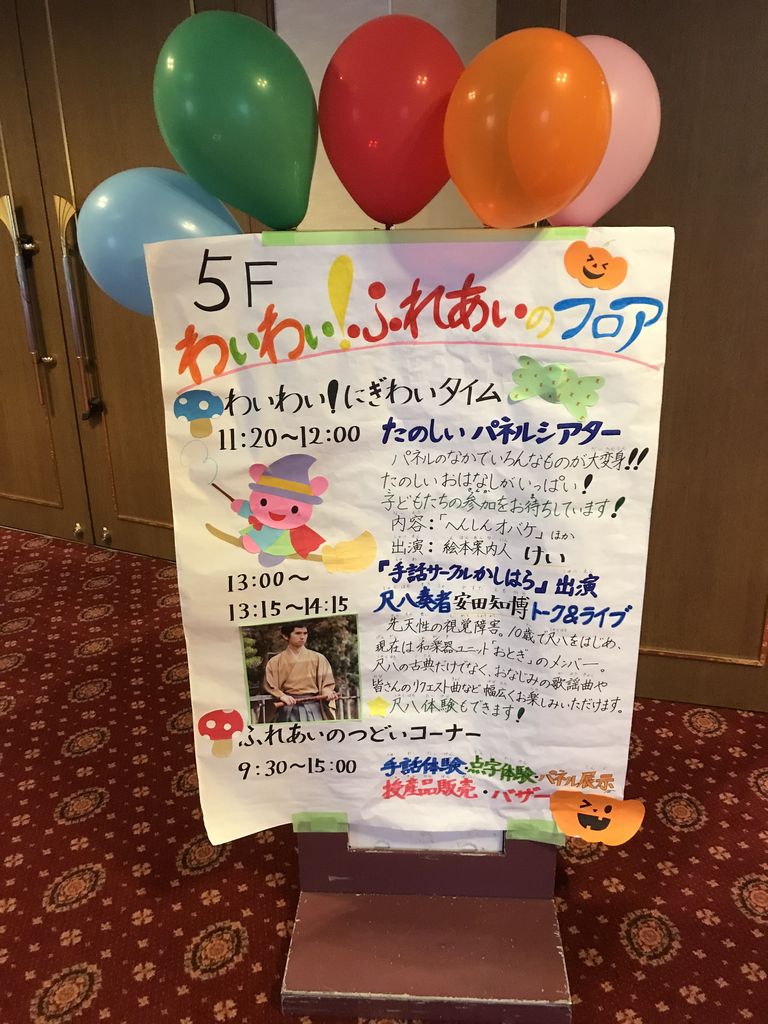 5F
わいわい!ふれあいのフロア
わいわい!にぎわいタイム
11:20〜12:00 たのしいパネルシアター
パネルのなかでいろんなものが大変身!!
たのしいおはなしがいっぱい!
子どもたちの参加をお待ちしています!
内容:「へんしんオバケ」ほか
出演:絵本案内人 けい
13:00〜 『手話サークルかしはら』出演
13:15〜14:15 尺八奏者 安田知博 トーク&ライブ
先天性の視覚障害。10歳で尺八をはじめ、
現在は和楽器ユニット「おとぎ」のメンバー。
尺八の古典だけでなく、おなじみの歌謡曲や
皆さんのリクエスト曲など幅広くお楽しみいただけます。
尺八体験もできます!
ふれあいのつどいコーナー
9:30〜15:00 手話体験・点字体験・パネル展示
授産品販売・バザー